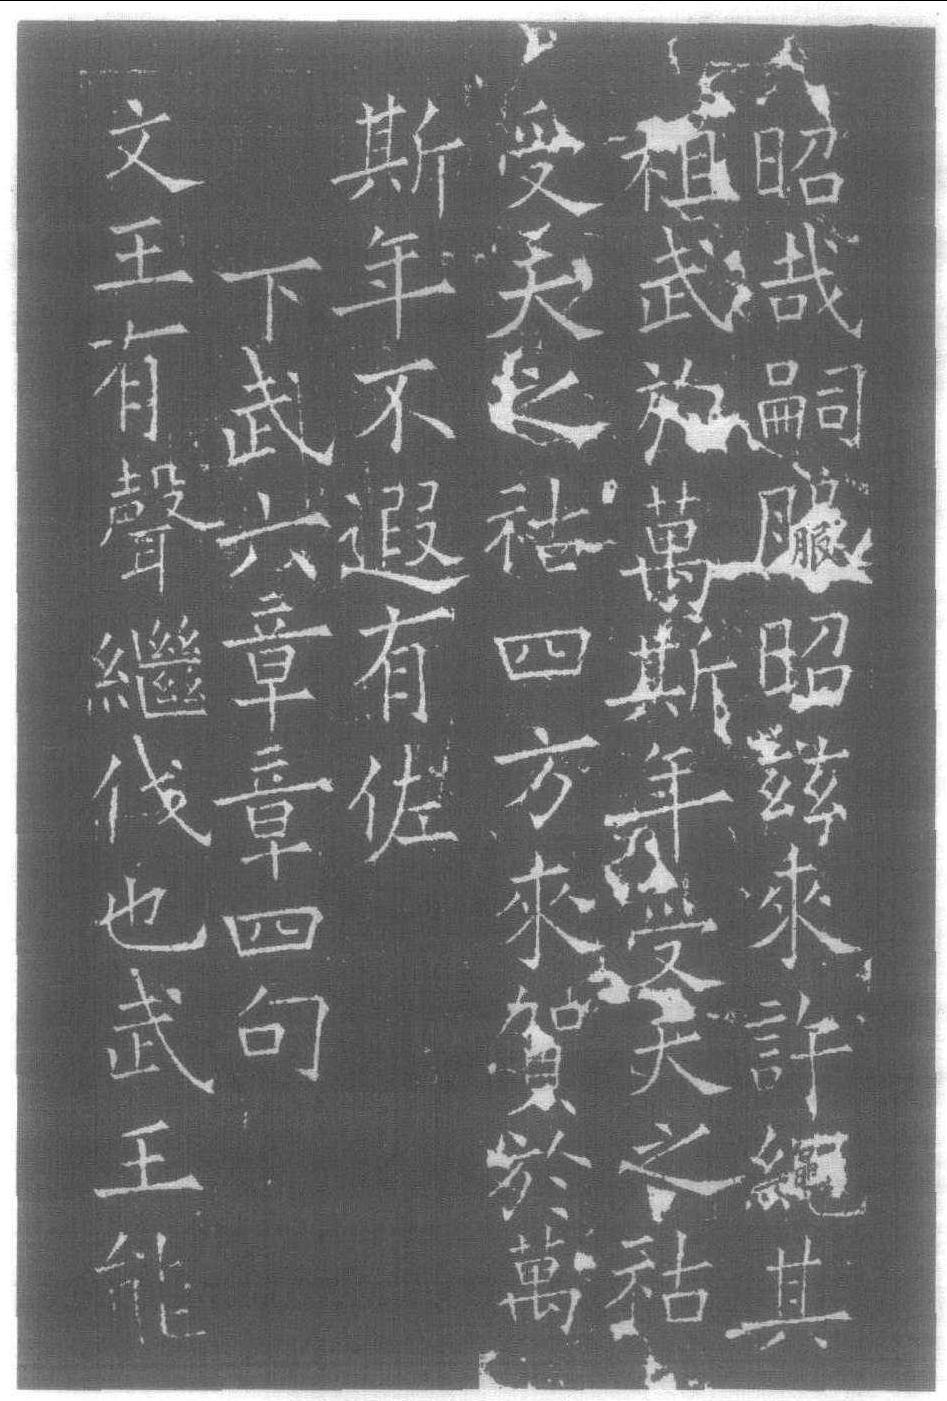 昭哉嗣服昭茲來許繩其
祖武於萬斯年受天之祜
受天之祜四方來賀於萬
斯年不遐有佐
下武六章章四句
文王有聲繼伐也武王能